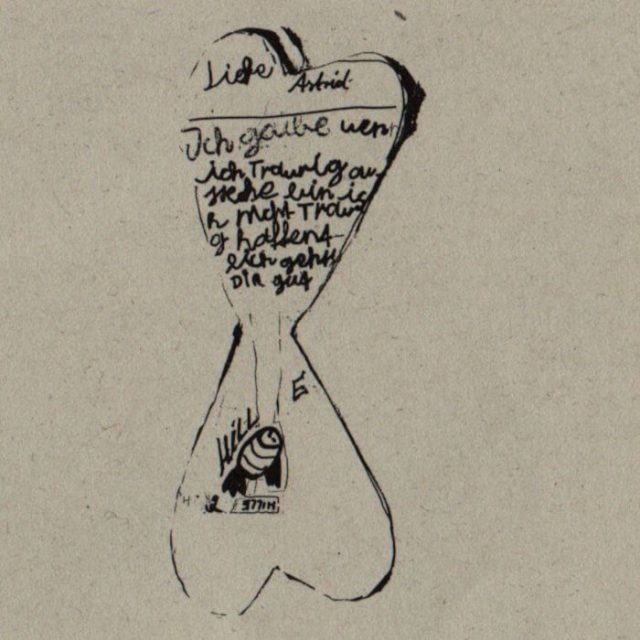 Liebe Astrid
Ich gaube wen
ich Traurig au
sehe bin ic
h nicht Trauri
g hoffent
lich gehts
DIR gut
E
Will